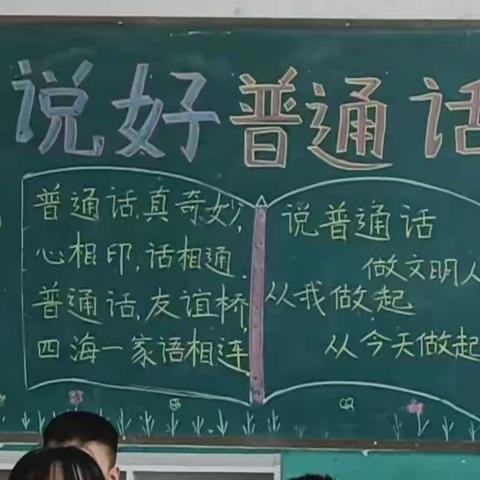 说好普通话
普通话,真奇妙,
心相印,话相通.
普通话,友谊桥
四海一家语相连
说普通话
做文明人
从我做起
从今天做起